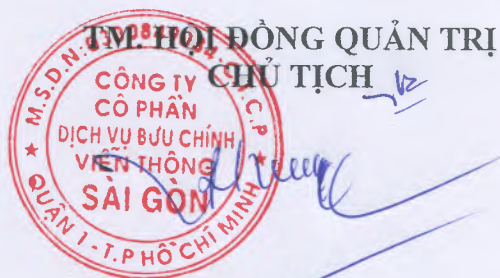 TM. HỘI ĐỒNG QUẢN TRỊ
CHỦ TỊCH
CÔNG TY
CỔ PHẦN
DỊCH VỤ BƯU CHÍNH
VIỄN THÔNG
SÀI GÒN
QUẬN 1 - T.P HỒ CHÍ MINH